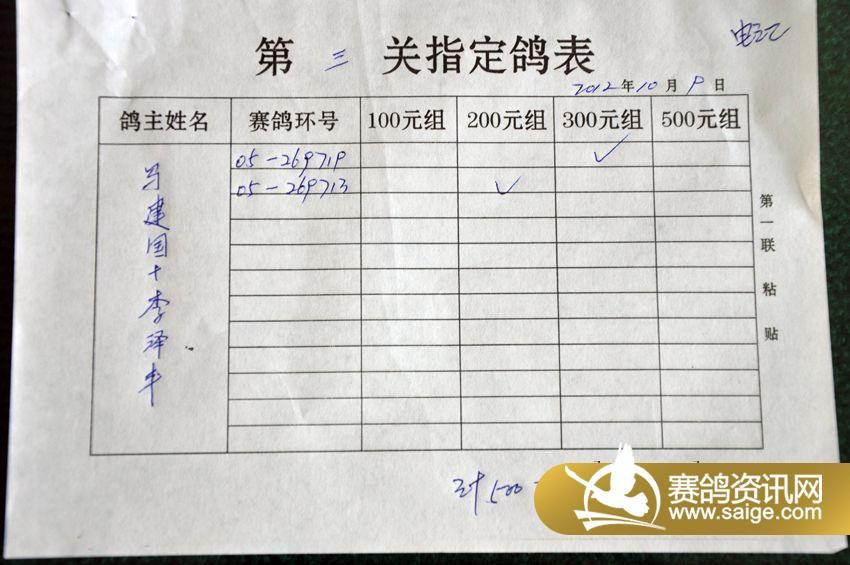 第 三 关指定鸽表
2012年10月9日
鸽主姓名 赛鸽环号 100元组 200元组 300元组 500元组
马建国+李泽丰
05-269719 ✓
05-269713 ✓
第一联 粘贴
计500
赛鸽资讯网
www.saige.com